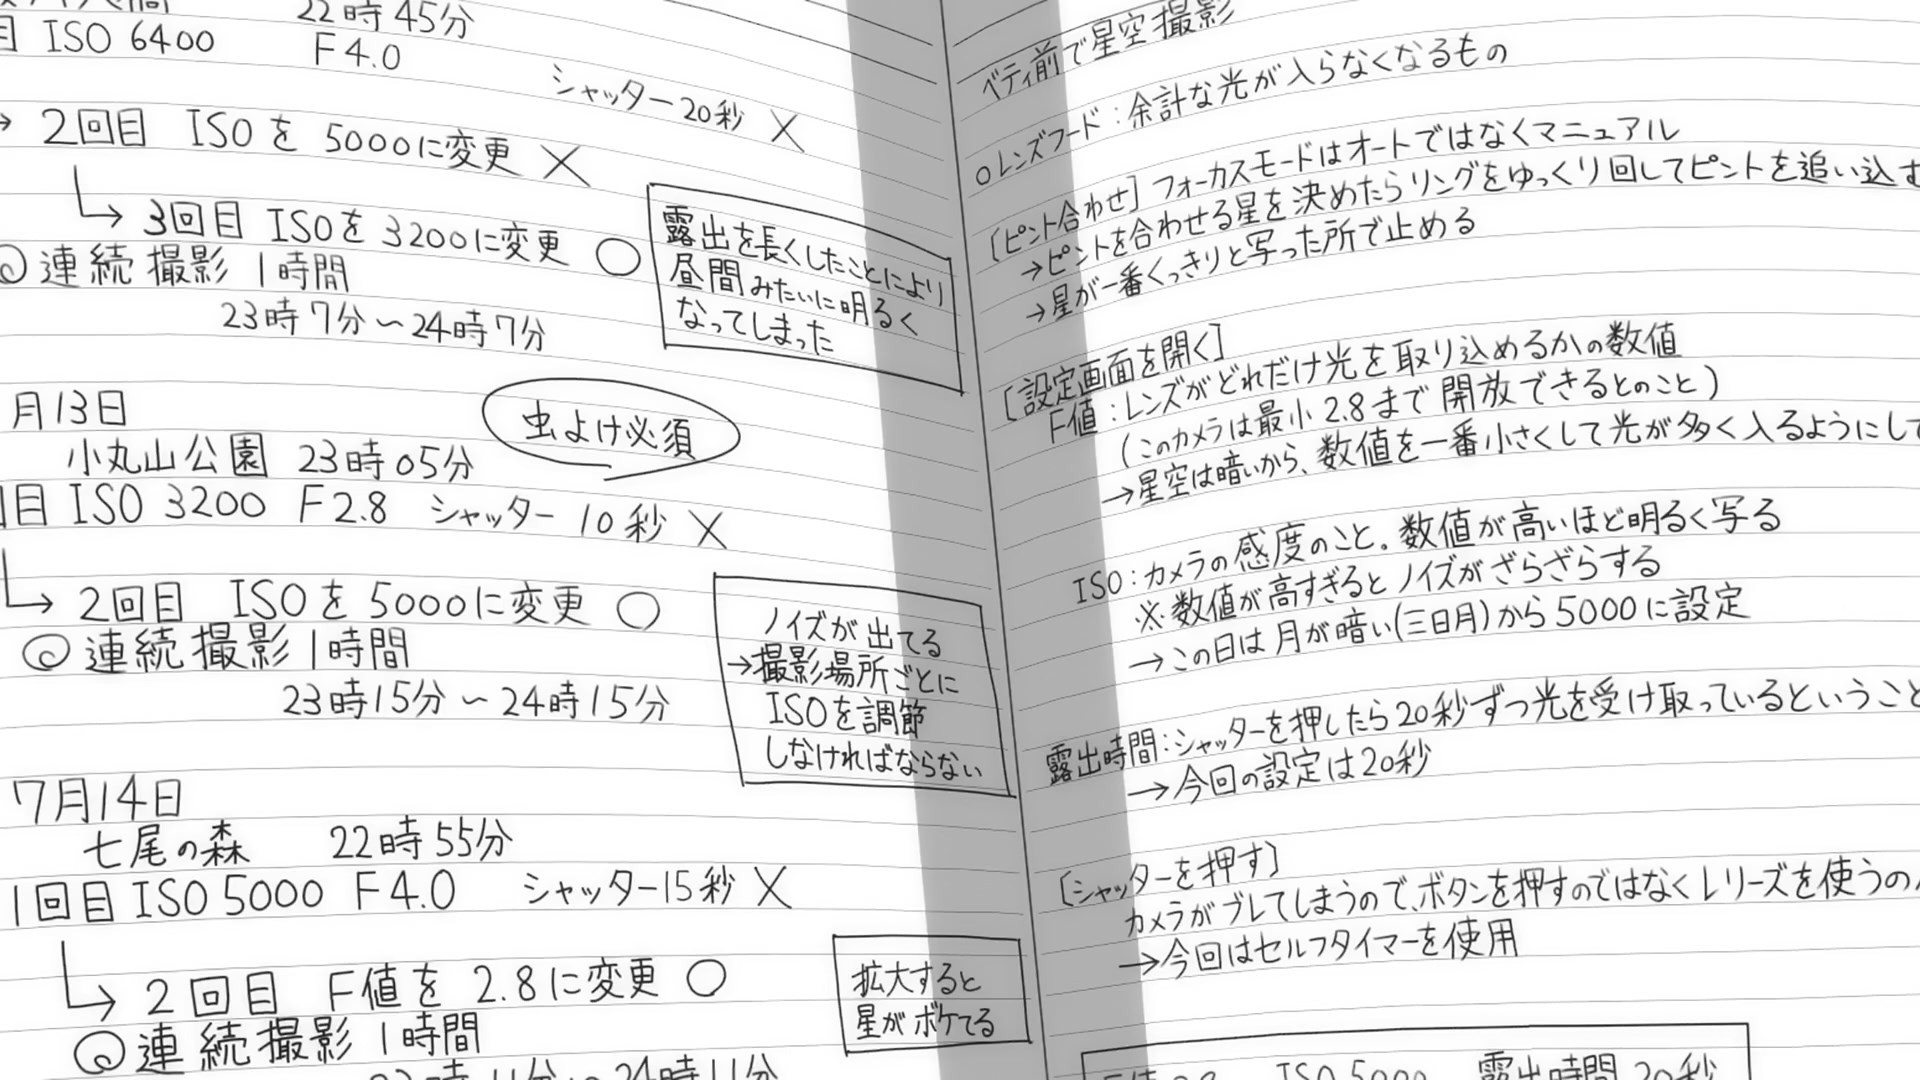 22時45分
目 ISO 6400 F4.0
シャッター20秒 ×
→ 2回目 ISOを 5000に変更 ×
↳ 3回目 ISOを 3200に変更 ○
◎連続撮影 1時間
23時7分〜24時7分
露出を長くしたことにより
昼間みたいに明るく
なってしまった
月13日
小丸山公園 23時05分
虫よけ必須
回目 ISO 3200 F2.8 シャッター 10秒 ×
↳ 2回目 ISOを 5000に変更 ○
◎連続撮影 1時間
23時15分〜24時15分
ノイズが出てる
→撮影場所ごとに
ISOを調節
しなければならない
7月14日
七尾の森 22時55分
1回目 ISO 5000 F4.0 シャッター15秒 ×
↳ 2回目 F値を 2.8に変更 ○
◎連続撮影 1時間
拡大すると
星がボケてる
ベティ前で星空撮影
○レンズフード:余計な光が入らなくなるもの
[ピント合わせ] フォーカスモードはオートではなくマニュアル
→ピントを合わせる星を決めたらリングをゆっくり回してピントを追い込む
→星が一番くっきりと写った所で止める
[設定画面を開く]
F値:レンズがどれだけ光を取り込めるかの数値
(このカメラは最小2.8まで開放できるとのこと)
→星空は暗いから、数値を一番小さくして光が多く入るようにして
ISO:カメラの感度のこと。数値が高いほど明るく写る
※数値が高すぎるとノイズがざらざらする
→この日は月が暗い(三日月)から5000に設定
露出時間:シャッターを押したら20秒ずつ光を受け取っているということ
→今回の設定は20秒
[シャッターを押す]
カメラがブレてしまうので、ボタンを押すのではなくレリーズを使うの
→今回はセルフタイマーを使用
ISO 5000 露出時間 20秒